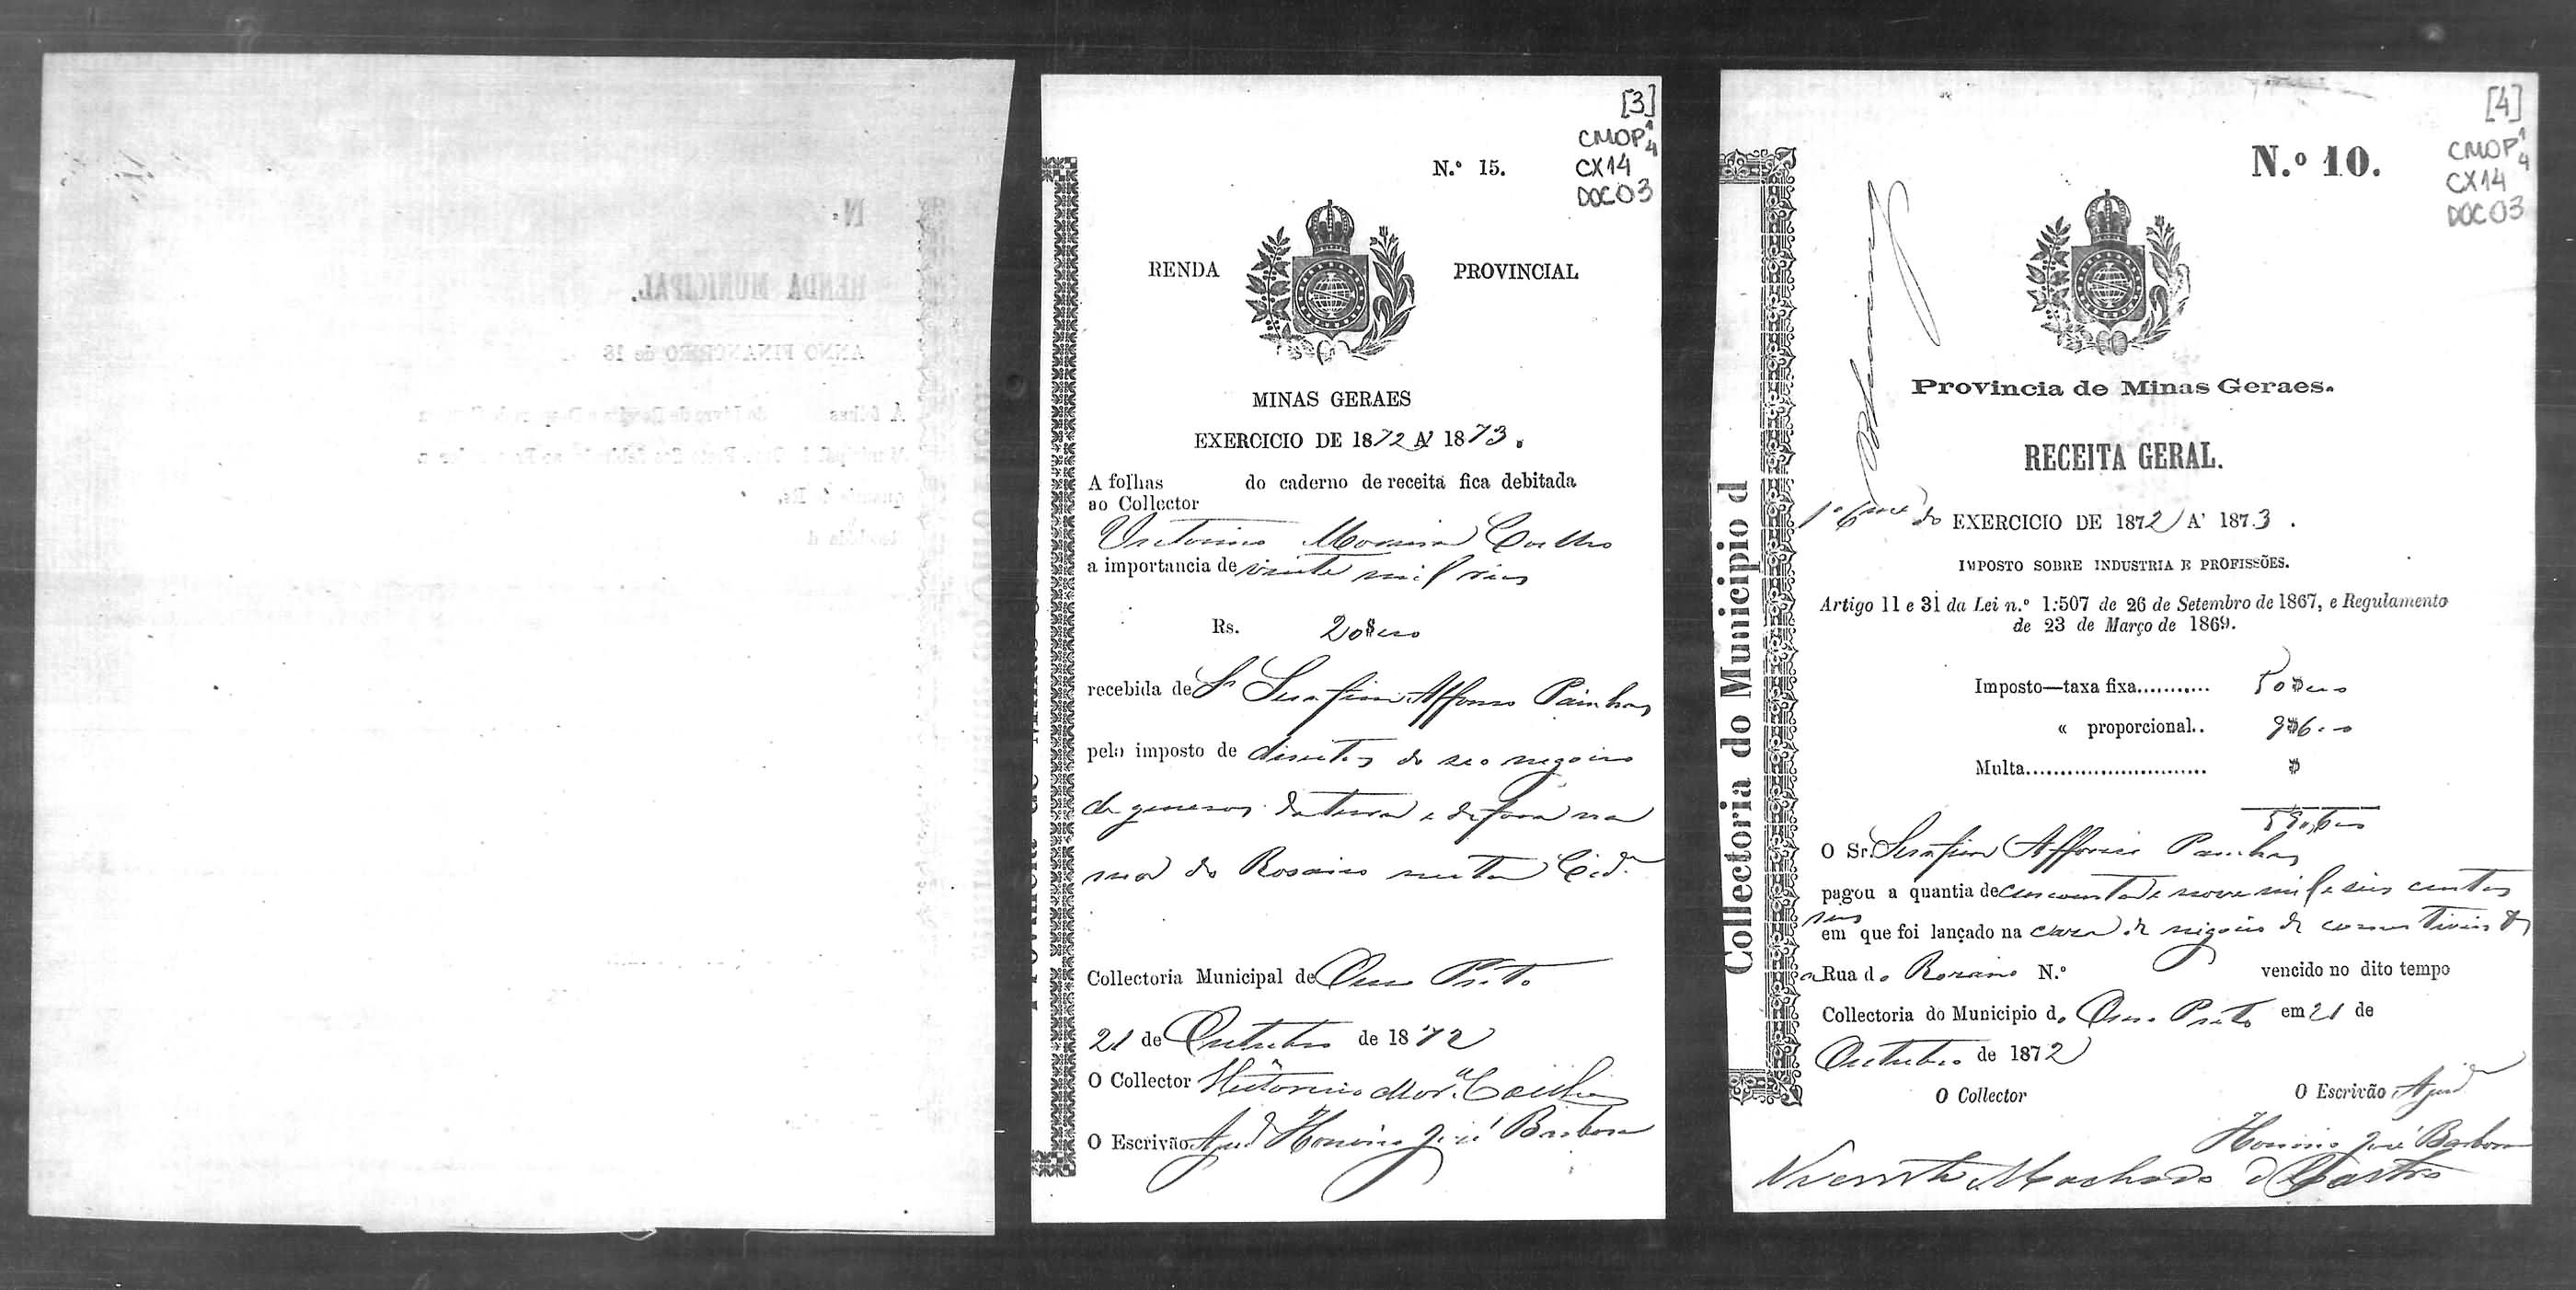 N.
RENDA MUNICIPAL.
ANNO FINANCEIRO de 18
[3]
CMOP 1/4
CX14
DOC03
N.º 15.
RENDA PROVINCIAL
MINAS GERAES
EXERCICIO DE 1872 A' 1873.
A folhas do caderno de receita fica debitada
ao Collector
Victorino Moreira Coelho
a importancia de vinte mil reis
Rs. 20$000
recebida de Sr Serafim Affonso Painhas
pelo imposto de direitos do seo negocio
de generos da terra e de fora na
rua do Rosario nesta Cid.e
Collectoria Municipal de Ouro Preto
21 de Outubro de 1872
O Collector Victorino Mor.a Coelho
O Escrivão Ajud Honorio José Barbosa
[4]
CMOP 1/4
CX14
DOC03
N.º 10.
Provincia de Minas Geraes.
RECEITA GERAL.
1º 6me do EXERCICIO DE 1872 A' 1873.
IMPOSTO SOBRE INDUSTRIA E PROFISSÕES.
Artigo 11 e 31 da Lei n.º 1:507 de 26 de Setembro de 1867, e Regulamento
de 23 de Março de 1869.
Imposto—taxa fixa........... 50$000
« proporcional.. 9$600
Multa........................... $
59$600
O Sr. Serafim Affonso Painhas
pagou a quantia de cincoenta e nove mil e seis centos
reis
em que foi lançado na casa de negocio de comestiveis
a Rua do Rozario N.º vencido no dito tempo
Collectoria do Municipio de Ouro Preto em 21 de
Outubro de 1872
O Collector O Escrivão Ajud
Honorio José Barbosa
Vicente Machado de Castro
Collectoria do Municipio d